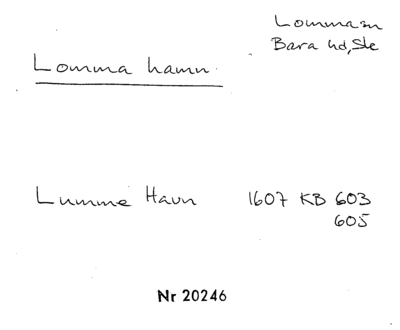 Lomma sn
Bara hd, Ske
Lomma hamn
Lumme Haun 1607 KB 603
605
Nr 20246